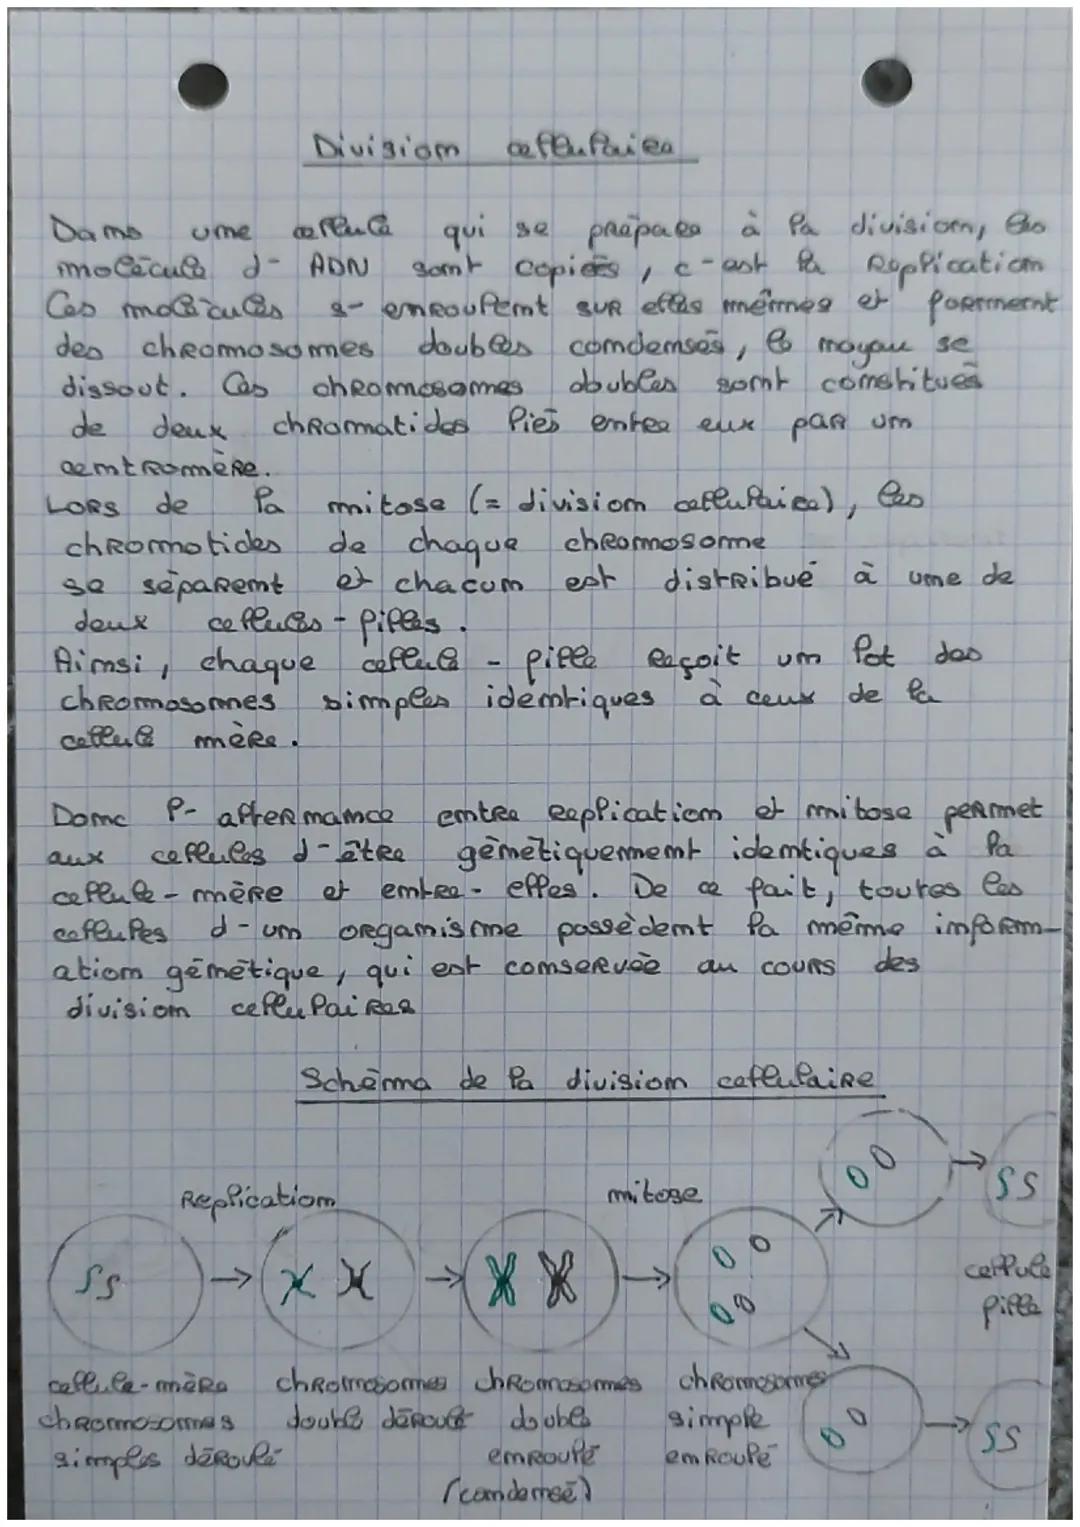 Division cellulaire
Dans une cellule qui se prépare à la division, les
molécule d-ADN sont copiées, c-est la Replication
Ces molécules s-enroulent sur elles mêmes et forment
des chromosomes doubles condensés, le noyau se
dissout. Ces chromosomes doubles sont constitués
de deux chromatides liés entre eux par un
centromère.
Lors de la mitose (= division cellulaire), les
chromatides de chaque chromosome
se séparent et chacun est distribué à une de
deux cellules-filles.
Ainsi, chaque cellule-fille reçoit un lot des
chromosomes simples identiques à ceux de la
cellule mère.
Donc l-alternance entre replication et mitose permet
aux cellules d-être génétiquement identiques à la
cellule-mère et entre-elles. De ce fait, toutes les
cellules d-un organisme possèdent la même inform-
ation génétique, qui est conservée au cours des
division cellulaires
Schéma de la division cellulaire
Replication mitose
cellule fille
cellule-mère
chromosomes
simples déroulé
chromosomes
double déroulé
chromosomes
double
enroulé
(condensé)
chromosomes
simple
enroulé